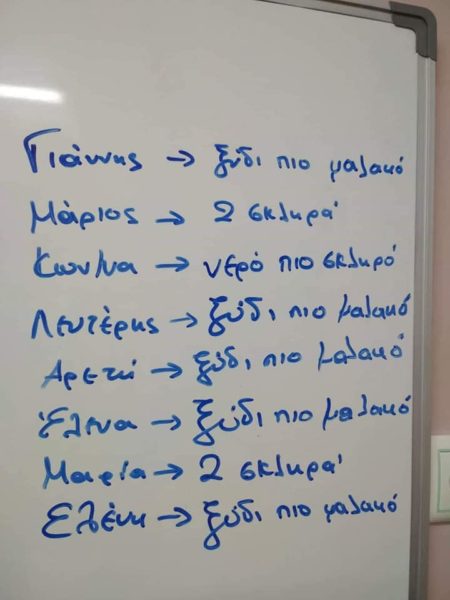 Γιάννης → ξύδι πιο μαλακό
Μάριος → 2 σκληρά
Κων/να → νερό πιο σκληρό
Λευτέρης → ξύδι πιο μαλακό
Αρετή → ξύδι πιο μαλακό
Έλενα → ξύδι πιο μαλακό
Μαρία → 2 σκληρά
Ελένη → ξύδι πιο μαλακό